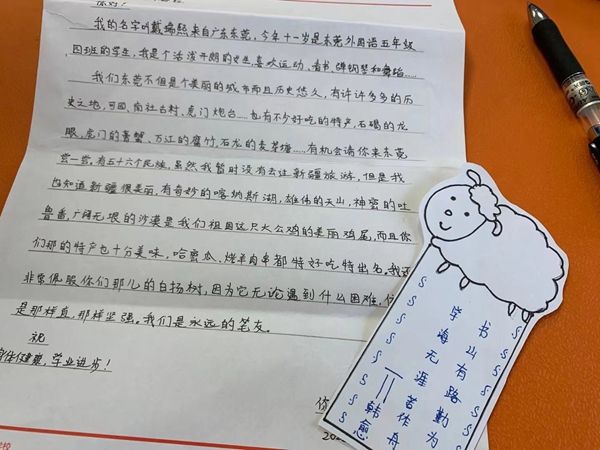 你好！
我的名字叫戴熙,来自广东东莞，今年十一岁是东莞外国语五年级
四班的学生，我是个活泼开朗的女生，喜欢运动、看书、弹钢琴和舞蹈……
我们东莞不但是个美丽的城市而且历史悠久，有许许多多的历
史之地，可园、南社古村、虎门炮台……也有不少好吃的特产，石碣的龙
眼、虎门的膏蟹、万江的腐竹、石龙的麦芽糖……有机会请你来东莞
尝一尝，有五十六个民族，虽然我暂时没有去过新疆旅游，但是我
也知道新疆很美丽，有奇妙的喀纳斯湖，雄伟的天山，神密的吐
鲁番，广阔无垠的沙漠是我们祖国这只大公鸡的美丽鸡尾，而且你
们那的特产也十分美味，哈密瓜、烤羊肉串都特好吃特出名。我还
非常佩服你们那儿的白扬树，因为它无论遇到什么困难，
是那样直，那样坚强。我们是永远的笔友。
祝
身体健康，学业进步！
书山有路勤为
学海无涯苦作舟
——韩愈